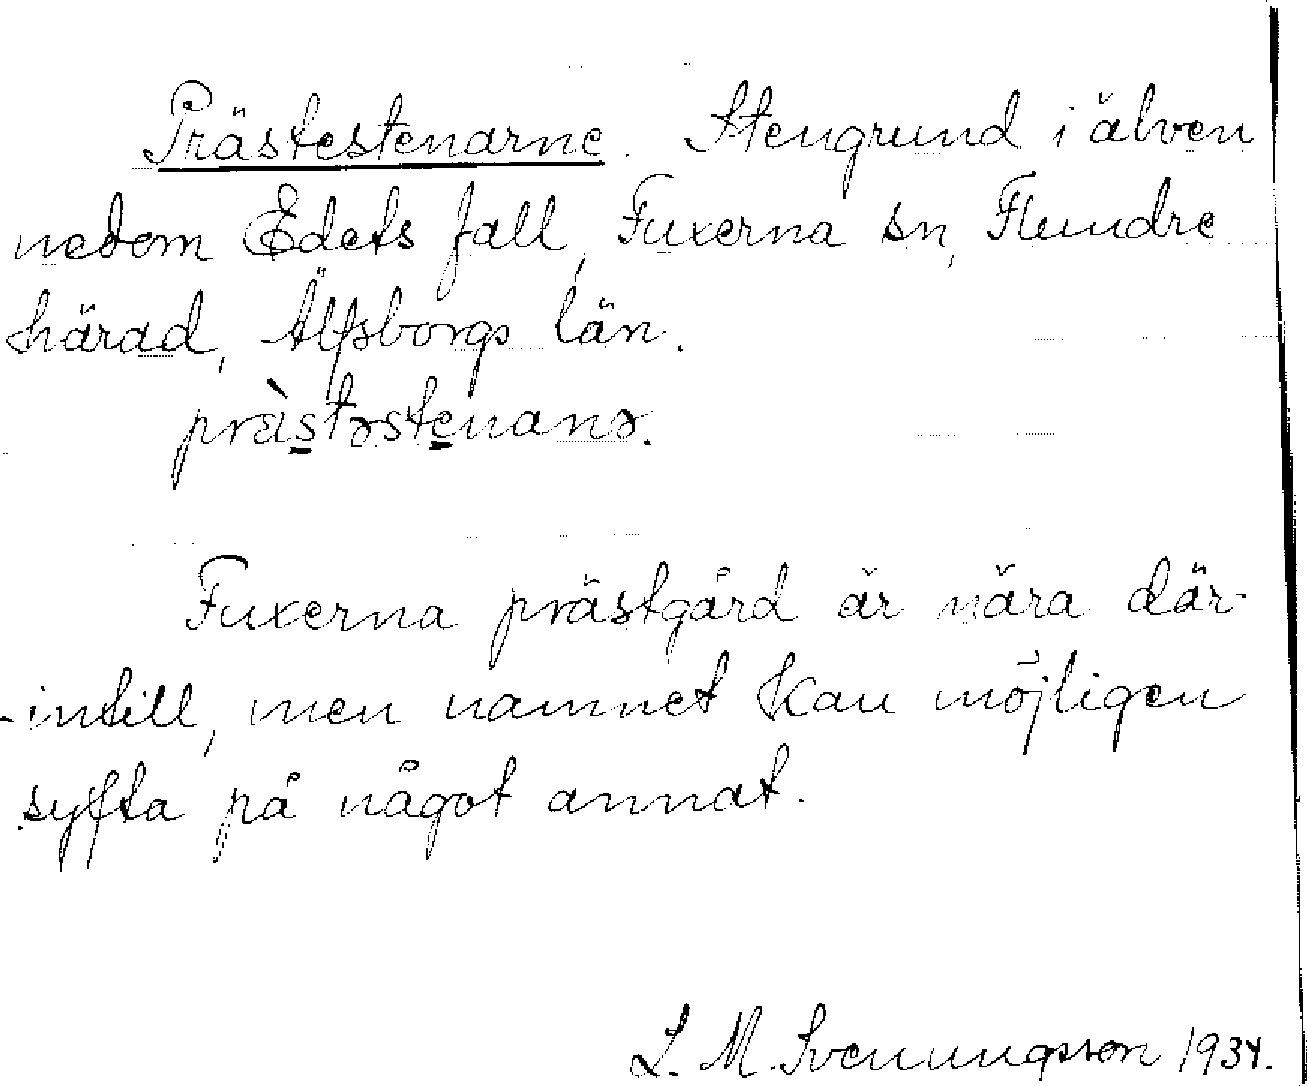 Prästestenarne. Stengrund i älven
nedom Edets fall, Fuxerna sn, Flundre
härad, Älfsborgs län.
prä̀stəstenanə.
Fuxerna prästgård är nära där-
-intill, men namnet kan möjligen
syfta på något annat.
L. M. Svenungsson 1934.